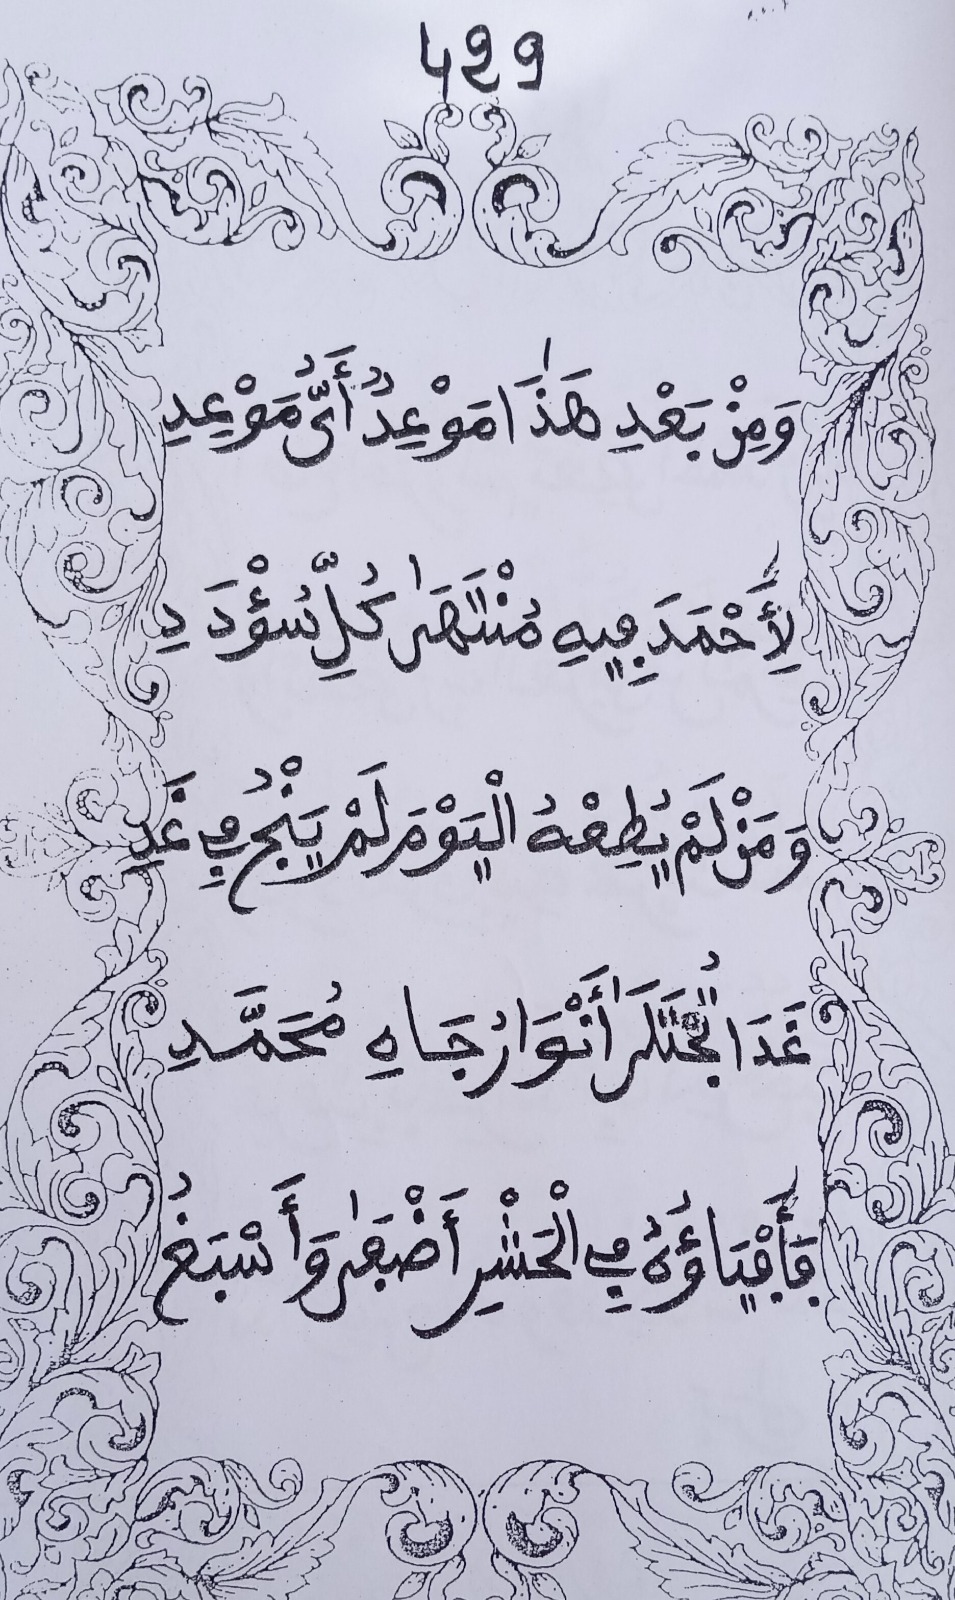 429
وَمِنْ بَعْدِ هَذَا مَوْعِدٌ أَيُّ مَوْعِدِ
لِأَحْمَدَ فِيهِ مُنْتَهَى كُلِّ سُؤْدَدِ
وَمَنْ لَمْ يُطِعْهُ الْيَوْمَ لَمْ يَنْجُ فِي غَدِ
غَدًا تُجْتَلَى أَنْوَارُ جَاهِ مُحَمَّدِ
فَأَفْيَاؤُهُ فِي الْحَشْرِ أَضْفَى وَأَسْبَغُ